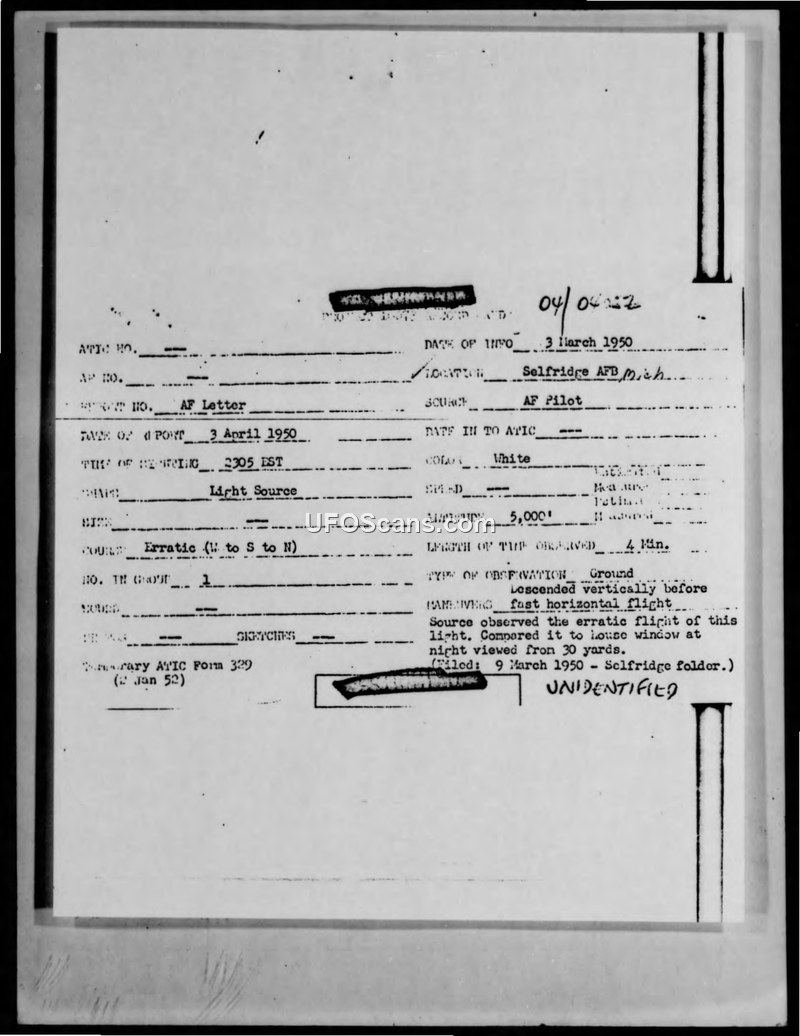 04/
ATIC NO. --- DATE OF INFO 3 March 1950
AF NO. --- LOCATION Selfridge AFB Mich
REPORT NO. AF Letter SOURCE AF Pilot
DATE OF REPORT 3 April 1950 DATE IN TO ATIC ---
TIME OF SIGHTING 2305 EST COLOR White
SHAPE Light Source SPEED ---
SIZE --- ALTITUDE 5,000'
UFOScans.com
COURSE Erratic (W to S to N) LENGTH OF TIME OBSERVED 4 Min.
NO. IN GROUP 1 TYPE OF OBSERVATION Ground
Descended vertically before
--- MANEUVERS fast horizontal flight
Source observed the erratic flight of this
--- SKETCHES --- light. Compared it to house window at
night viewed from 30 yards.
Temporary ATIC Form 329 (Filed: 9 March 1950 - Selfridge folder.)
(2 Jan 52) UNIDENTIFIED